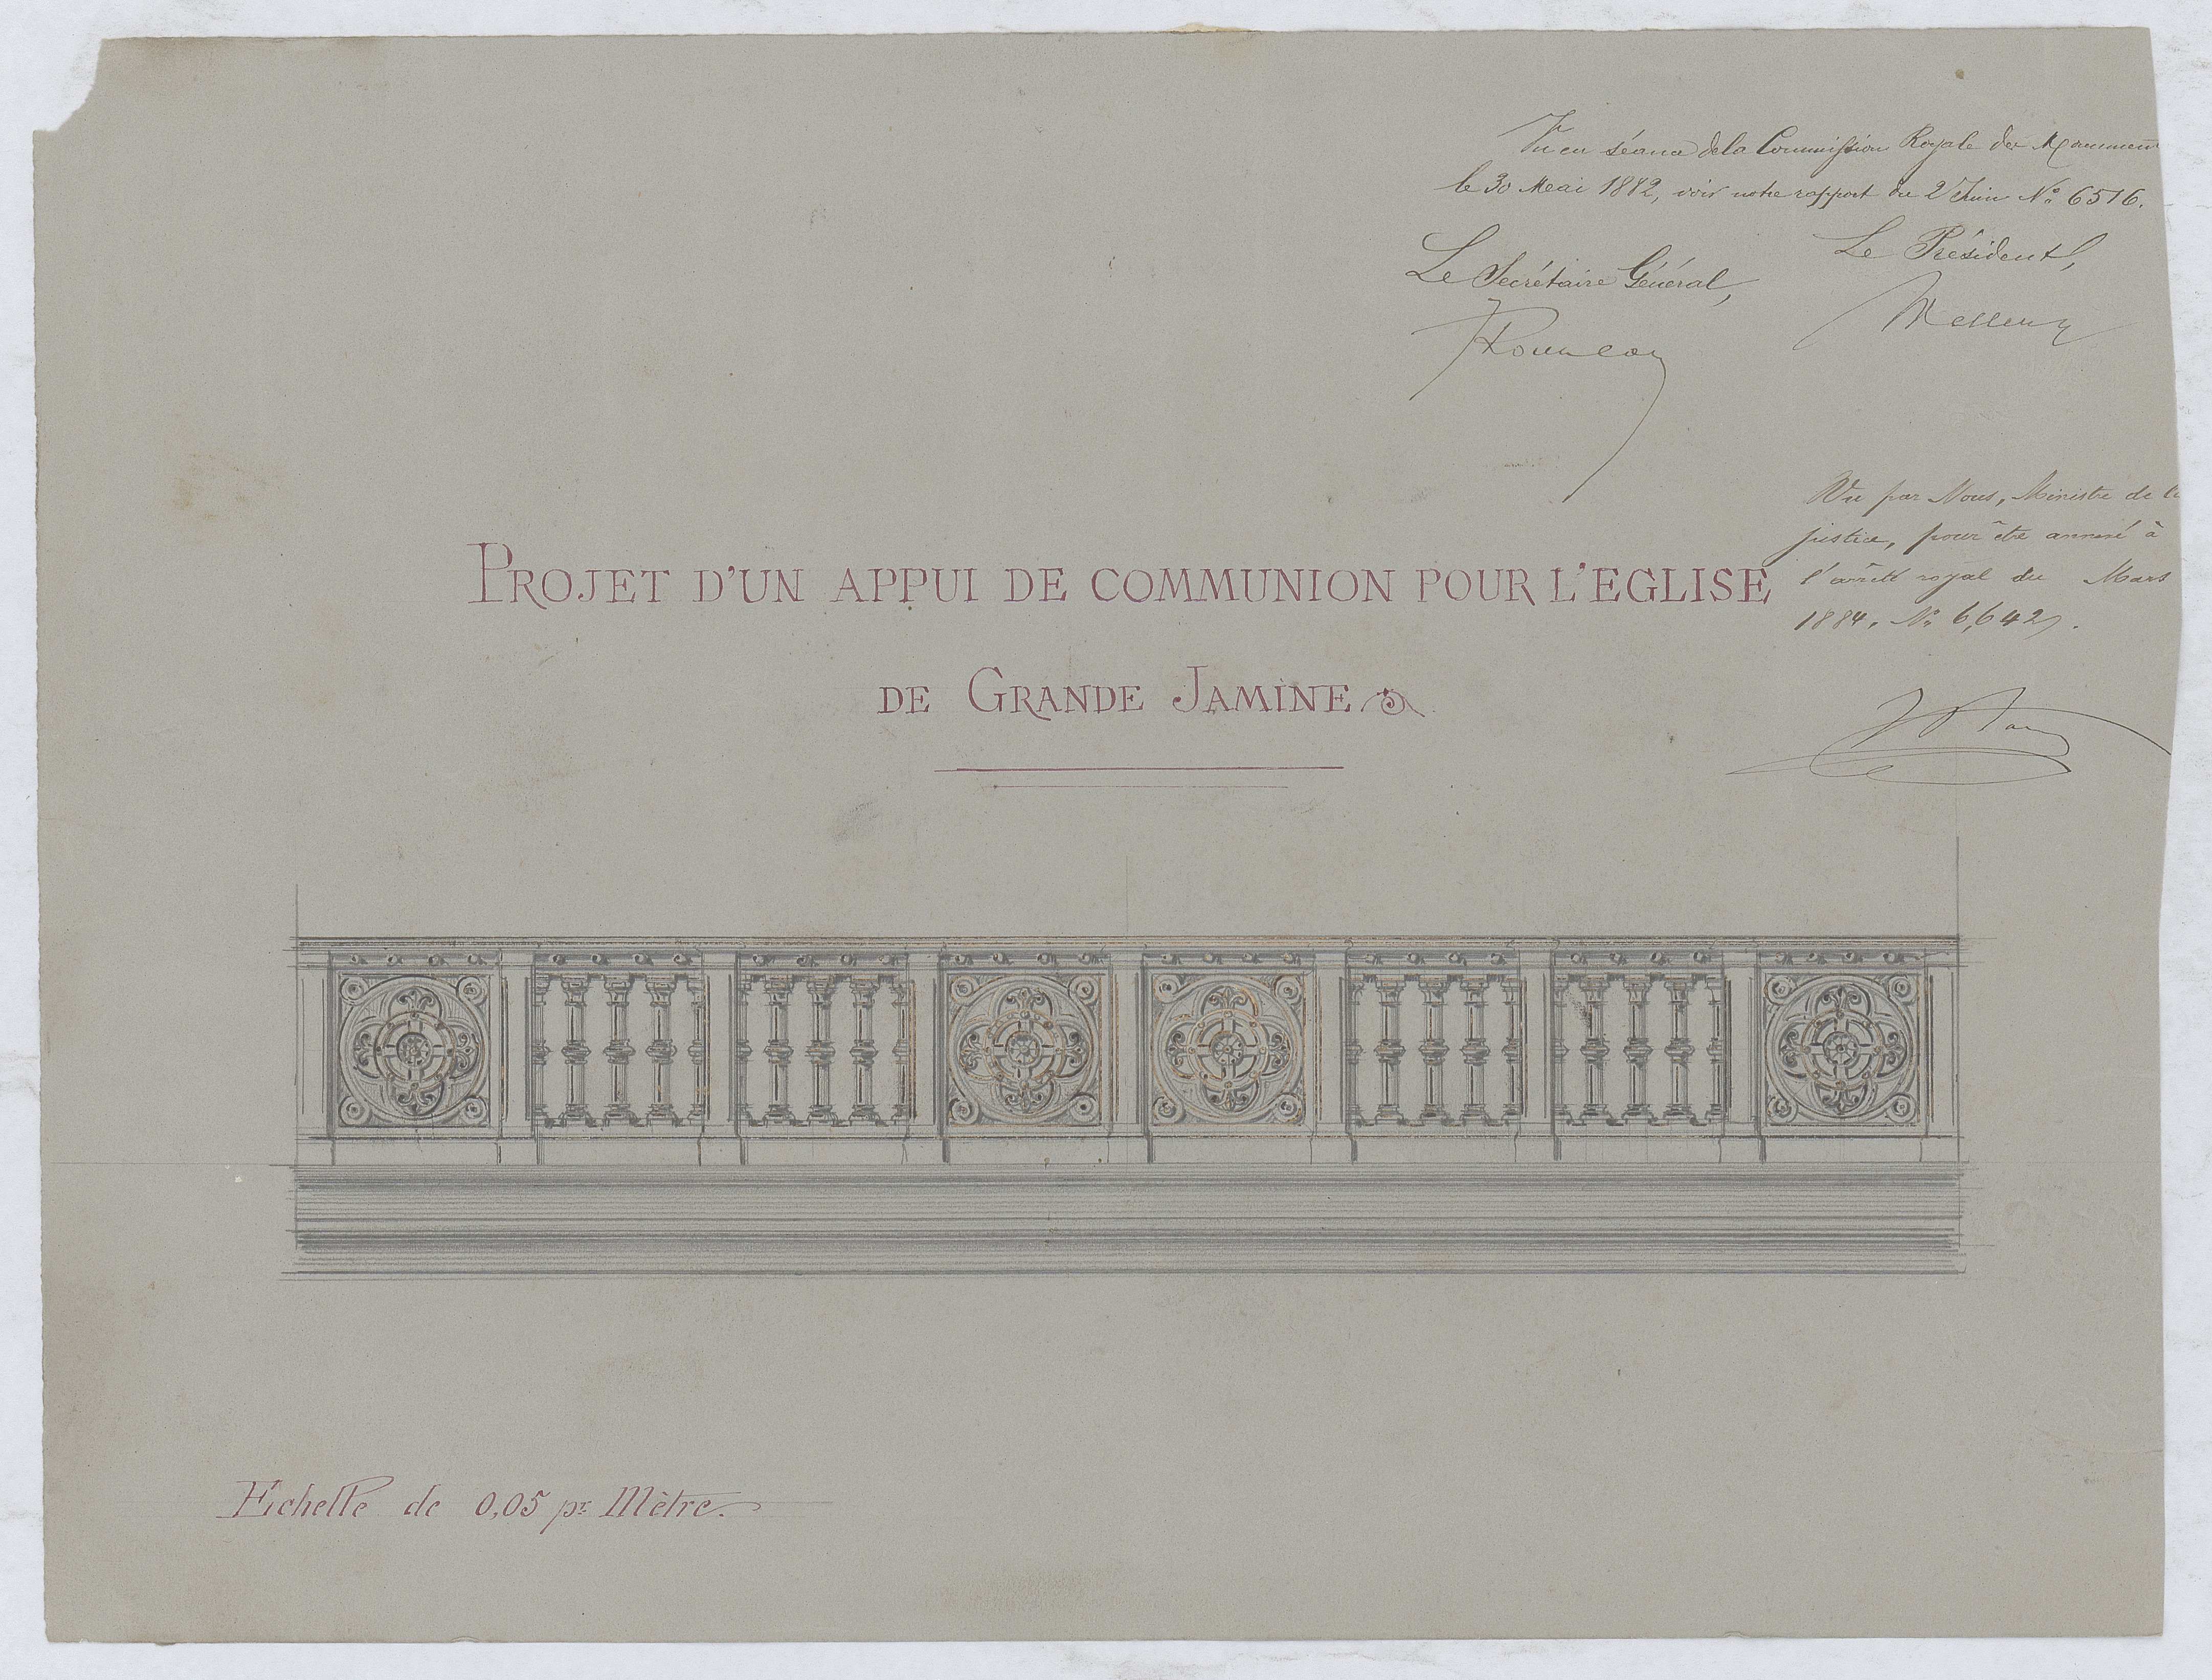 Vu en séance de la Commission Royale des Monumen
le 30 Mai 1882, voir notre rapport du 2 Juin Nº 6516.
Le Président,
Le Secrétaire Général,
Vu par Nous, Ministre de la
justice, pour être annexé à
l'arrêté royal du Mars
1884, Nº 6,642.
PROJET D'UN APPUI DE COMMUNION POUR L'EGLISE
DE GRANDE JAMINE
Echelle de 0,05 pr Mètre.